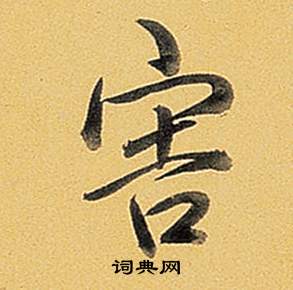 害
词典网